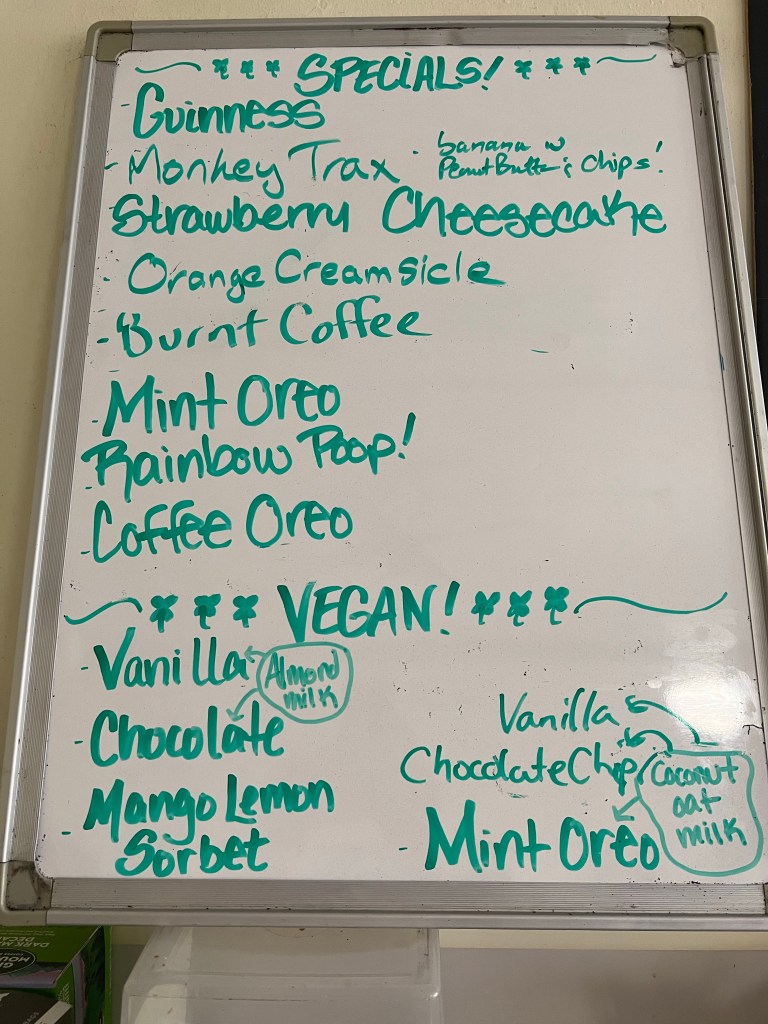 SPECIALS!
- Guinness
- Monkey Trax · banana w
Peanut Butter & Chips!
- Strawberry Cheesecake
- Orange Creamsicle
- Burnt Coffee
- Mint Oreo
- Rainbow Poop!
- Coffee Oreo
VEGAN!
- Vanilla
Almond
milk
- Chocolate
- Mango Lemon
Sorbet
Vanilla
Chocolate Chip
Coconut
oat
milk
- Mint Oreo